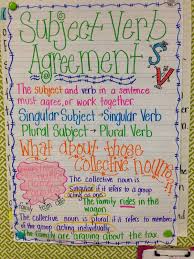 Subject Verb
Agreement
S
V
The subject and verb in a sentence
must agree, or work together.
Singular Subject → Singular Verb
Plural Subject → Plural Verb
What about those
collective nouns?!
The collective noun is
singular if it refers to a group
acting as one.
The family rides in the
wagon.
The collective noun is plural if it refers to members
of the group acting individually.
The family are arguing about the